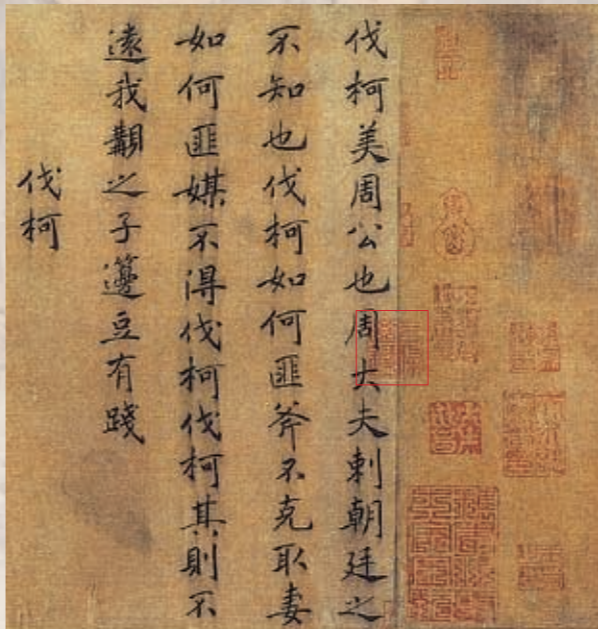 伐柯美周公也周大夫刺朝廷之
不知也伐柯如何匪斧不克取妻
如何匪媒不得伐柯伐柯其則不
遠我覯之子籩豆有踐
伐柯